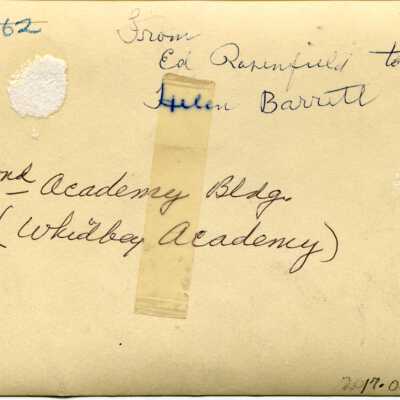 62
From
Ed Rosenfield to
Helen Barrett
nd Academy Bldg.
(Whidbey Academy)
2017.0